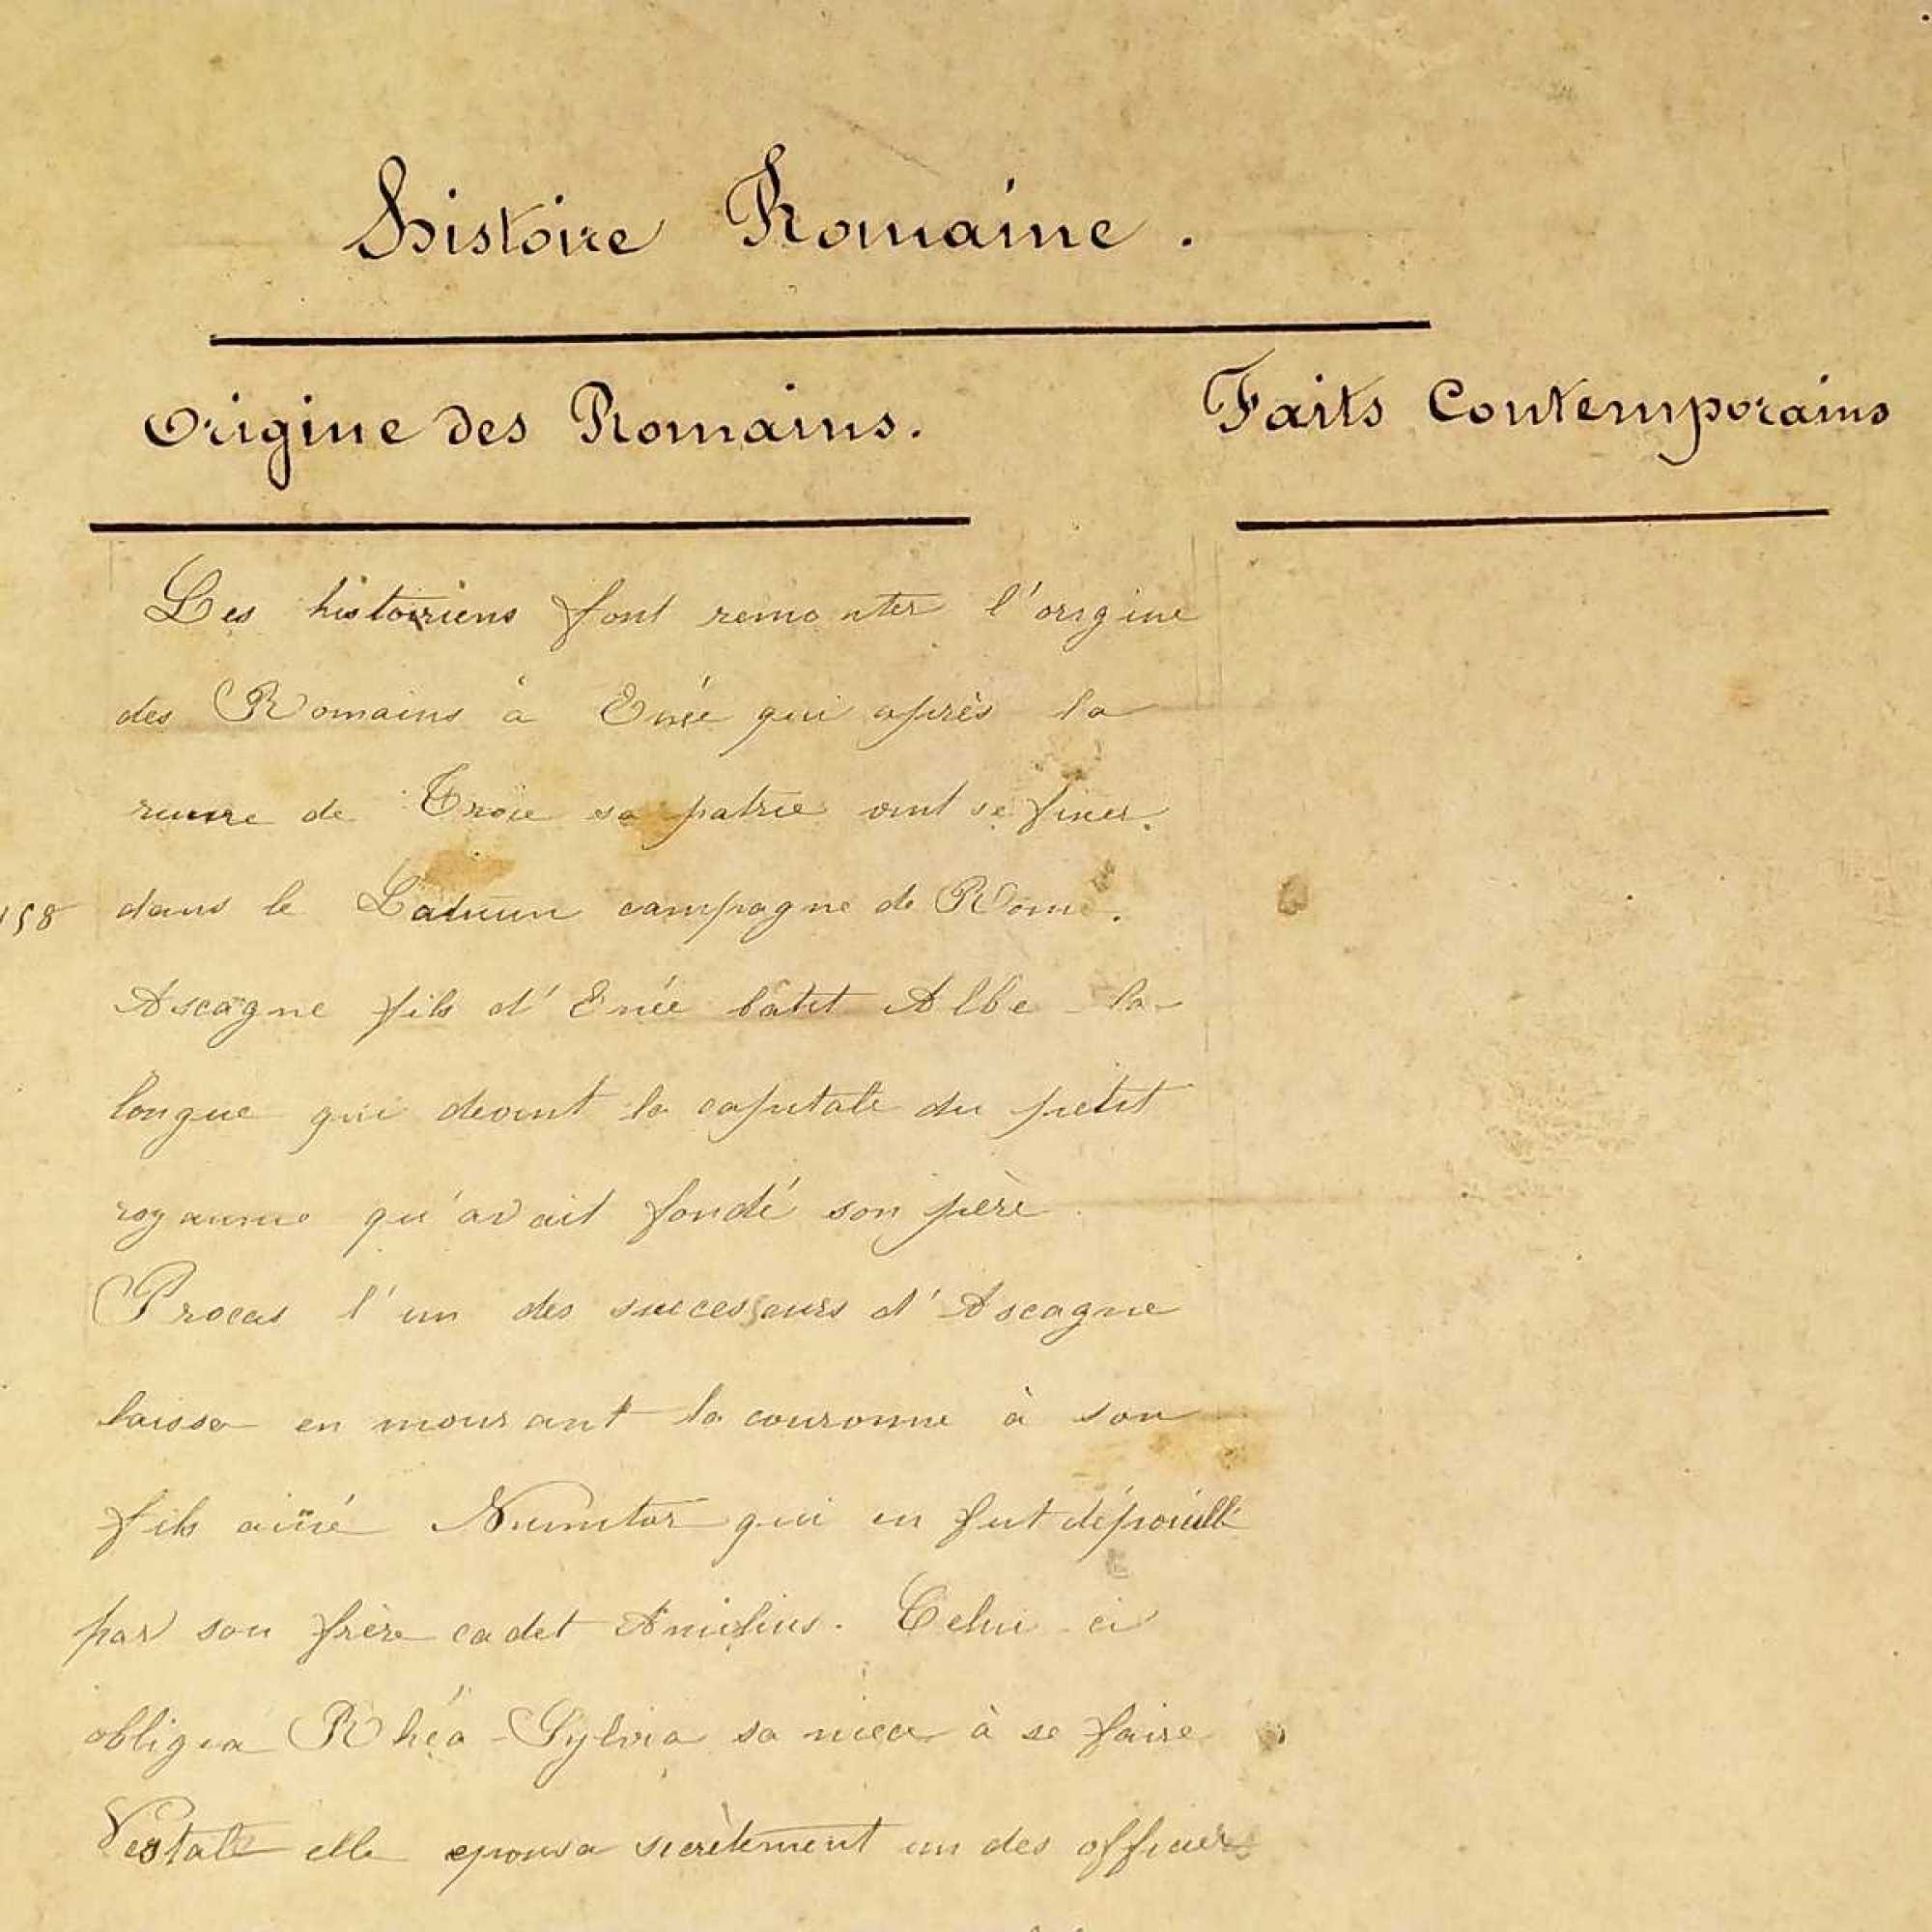 Histoire Romaine.
Origine des Romains.
Faits Contemporains
Les historiens font remonter l'origine
des Romains à Enée qui après la
ruine de Troie sa patrie vint se fixer.
158 dans le Latium campagne de Rome.
Ascagne fils d'Enée bâtit Albe-la-
longue qui devint la capitale du petit
royaume qu'avait fondé son père
Procas l'un des successeurs d'Ascagne
laissa en mourant la couronne à son
fils ainé Numitor qui en fut dépouillé
par son frère cadet Amulius. Celui-ci
obligea Rhéa-Sylvia sa nièce à se faire
Vestale elle epousa secrètement un des officiers